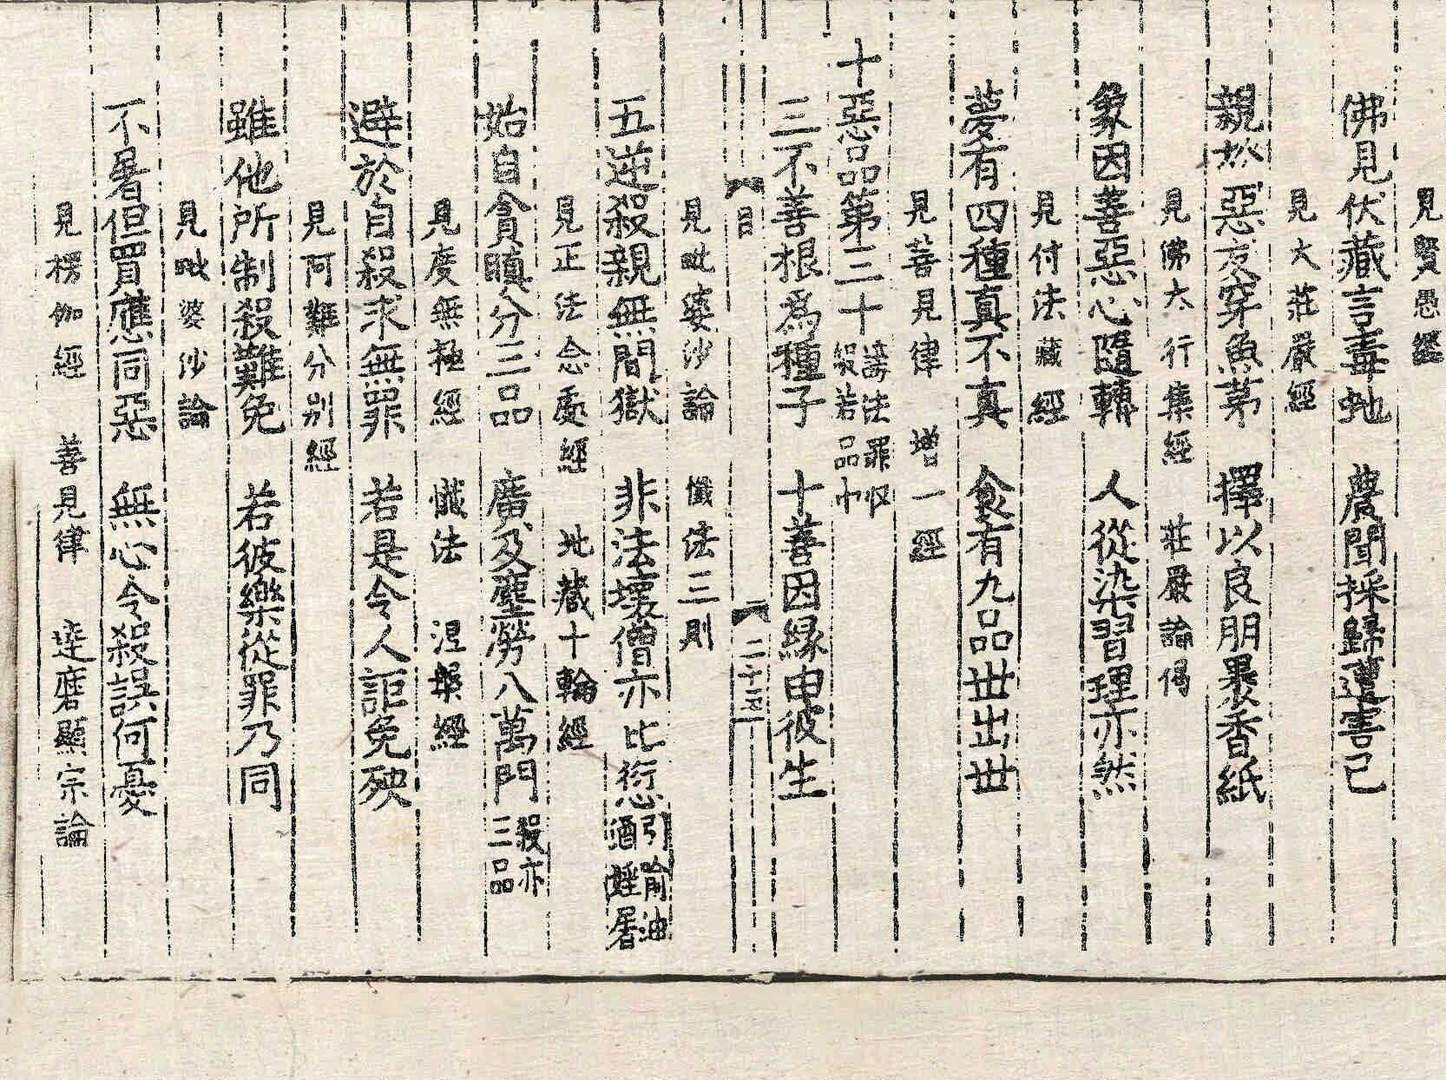 見賢愚經
佛見伏藏言毒虵　農聞採歸遭害己
見大莊嚴經
親於惡友穿魚茅　擇以良朋裹香紙
見佛大行集經　莊嚴論偈
象因善惡心隨轉　人從染習理亦然
見付法藏經
夢有四種真不真　食有九品世出世
見善見律　增一經
十惡品第三十 謗法罪収 般若品中
三不善根爲種子　十善因緣由彼生
目　二十五
見毗婆沙論　懺法三則
五逆殺親無間獄　非法壞僧亦比愆 引喻油 酒婬屠
見正法念處經　地藏十輪經
始自貪瞋分三品　廣及塵勞八萬門 殺亦 三品
見度無極經　懺法　涅槃經
避於自殺求無罪　若是令人詎免殃
見阿難分別經
雖他所制殺難免　若彼樂從罪乃同
見毗婆沙論
不屠但買應同惡　無心令殺誤何憂
見楞伽經　善見律　達磨顯宗論